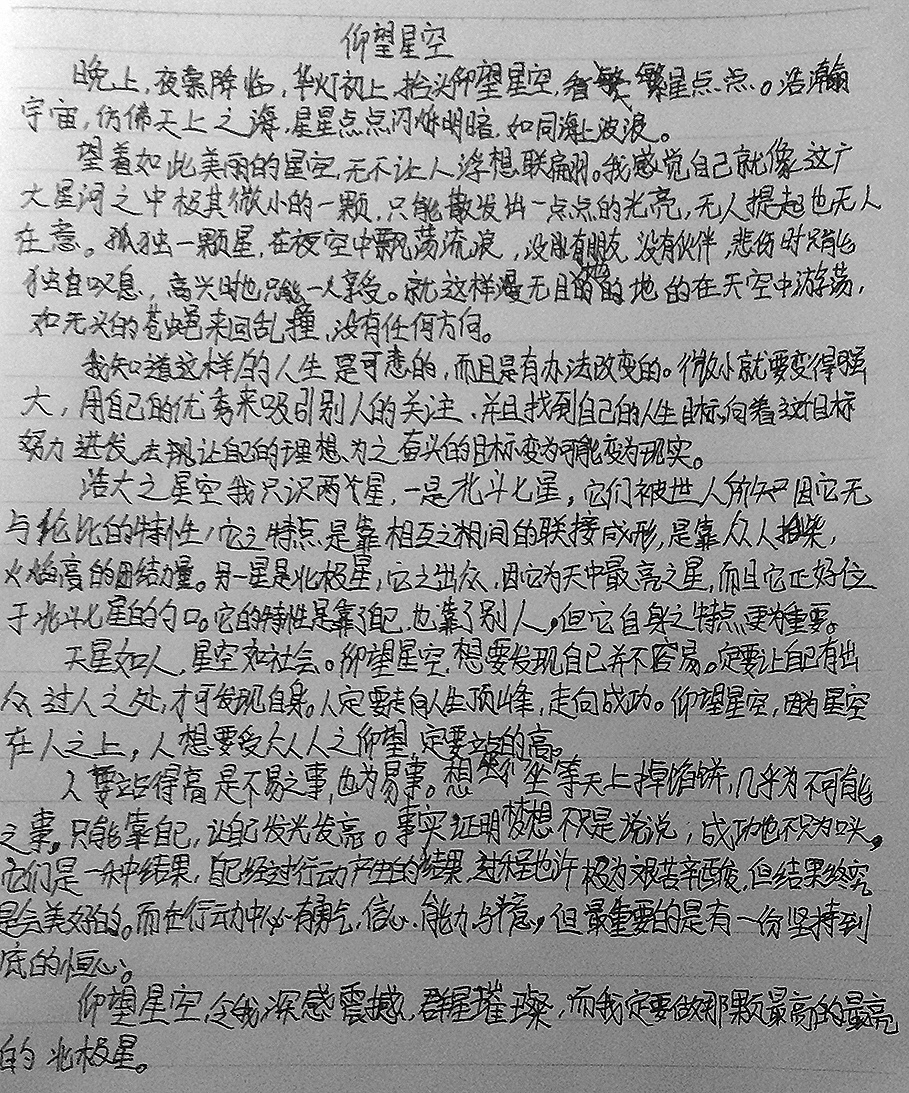 仰望星空
晚上，夜幕降临，华灯初上，抬头仰望星空，看繁星点点。浩瀚
宇宙，仿佛天上之海，星星点点闪烁明暗，如同海上波浪。
望着如此美丽的星空，无不让人浮想联翩。我感觉自己就像这广
大星河之中极其微小的一颗，只能散发出一点点的光亮，无人提起也无人
在意。孤独一颗星，在夜空中飘荡流浪，没有朋友，没有伙伴，悲伤时只能
独自叹息，高兴时也只能一人享受。就这样漫无目的的地的在天空中游荡，
如无头的苍蝇来回乱撞，没有任何方向。
我知道这样的人生是可悲的，而且是有办法改变的。微小就要变得强
大，用自己的优秀来吸引别人的关注，并且找到自己的人生目标，向着这目标
努力进发，去让自己的理想、为之奋斗的目标变为可能变为现实。
浩大之星空我只识两个星，一是北斗七星，它们被世人所知因它无
与伦比的特性，它之特点是靠相互之间的联接成形，是靠众人拾柴，
火焰高的团结力量。另一星是北极星，它之出众，因它为天中最亮之星，而且它正好位
于北斗七星的勺口。它的特性是靠了自己，也靠了别人，但它自身之特点更为重要。
天星如人，星空如社会。仰望星空，想要发现自己并不容易。定要让自己有出
众过人之处，才可发现自身。人定要走向人生顶峰，走向成功。仰望星空，因为星空
在人之上，人想要受众人之仰望，定要站的高。
人要站得高是不易之事，也为易事。想坐等天上掉馅饼，几乎为不可能
之事。只能靠自己，让自己发光发亮。事实证明梦想不只是说说，成功也不只为口头。
它们是一种结果，自己经过行动产生的结果，过程也许极为艰苦辛酸，但结果终究
是会美好的。而在行动中必有勇气，信心、能力与意，但最重要的是有一份坚持到
底的恒心。
仰望星空，令我深感震撼，群星璀璨，而我定要做那颗最高的最亮
的北极星。